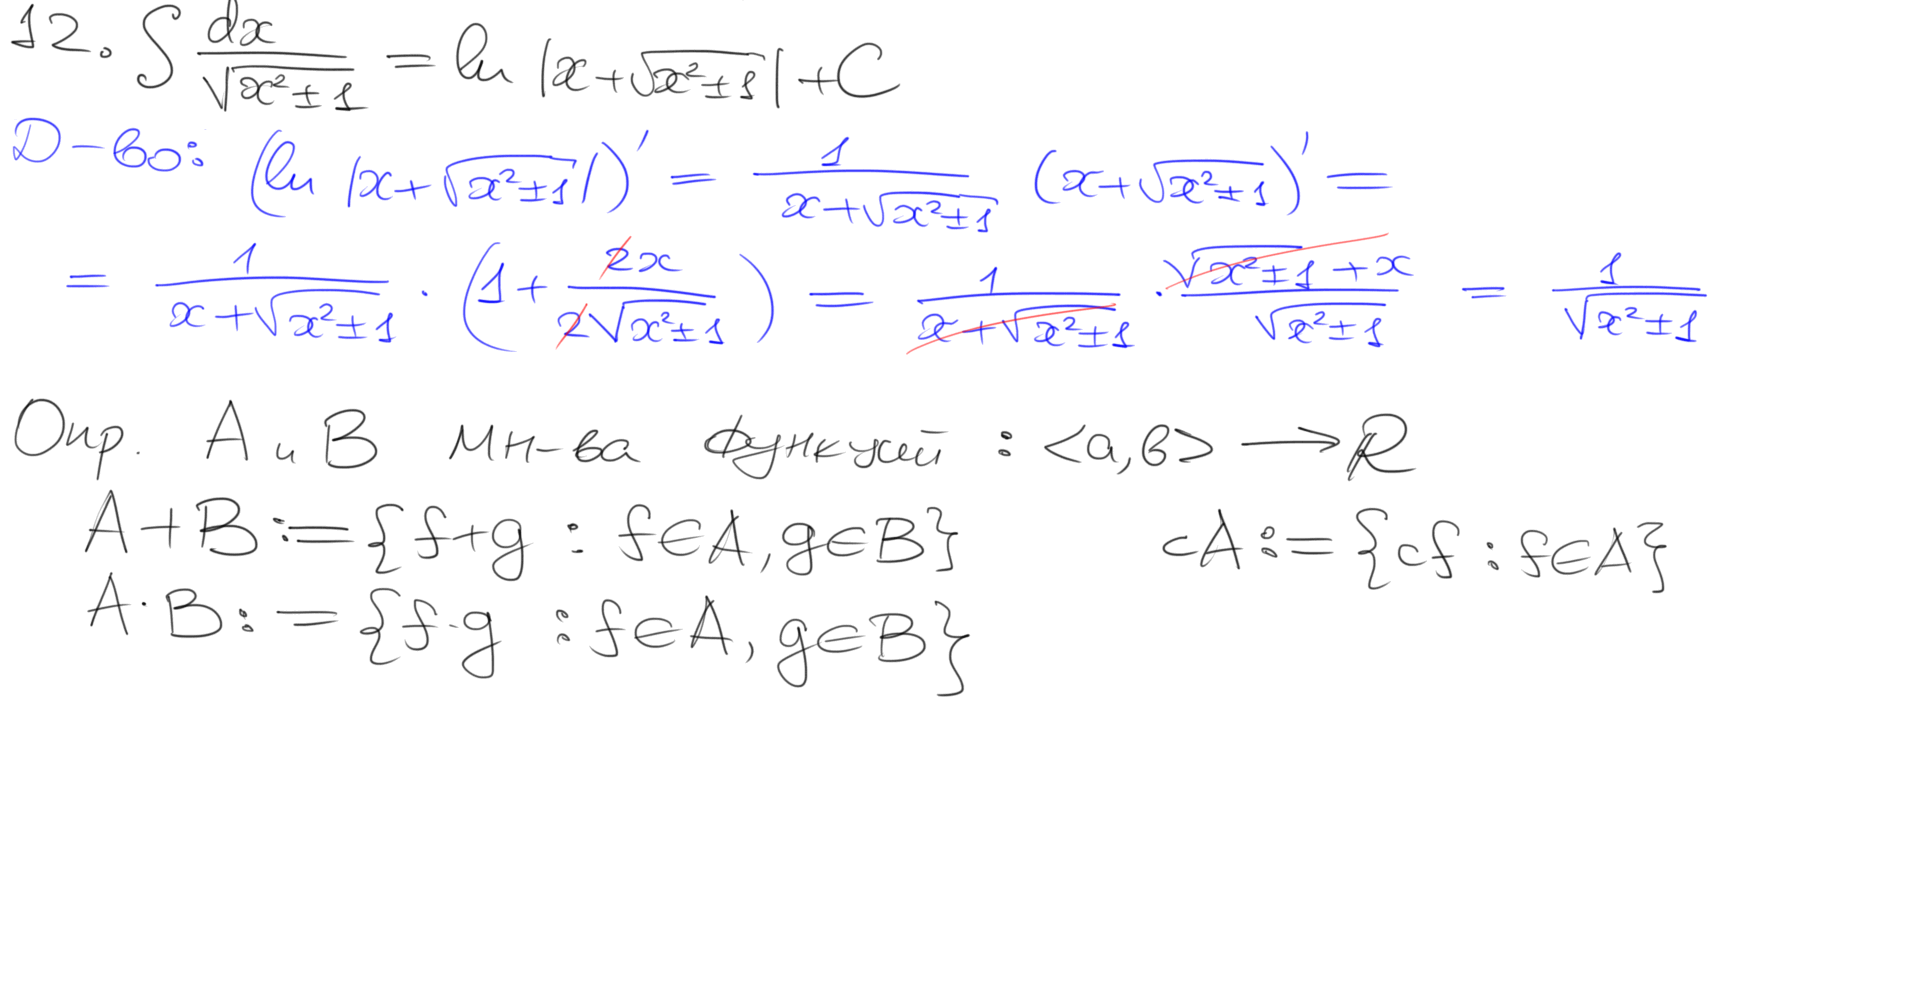 12. ∫ dx/√(x²±1) = ln |x+√(x²±1)| + C
Д-во: (ln |x+√(x²±1)|)′ = 1/(x+√(x²±1)) (x+√(x²±1))′ =
= 1/(x+√(x²±1)) · (1+ 2x/(2√(x²±1))) = 1/(x+√(x²±1)) · (√(x²±1)+x)/√(x²±1) = 1/√(x²±1)
Опр. A и B мн-ва функций : <a,b> → ℝ
A+B := {f+g : f∈A, g∈B} cA := {cf : f∈A}
A·B := {f·g : f∈A, g∈B}